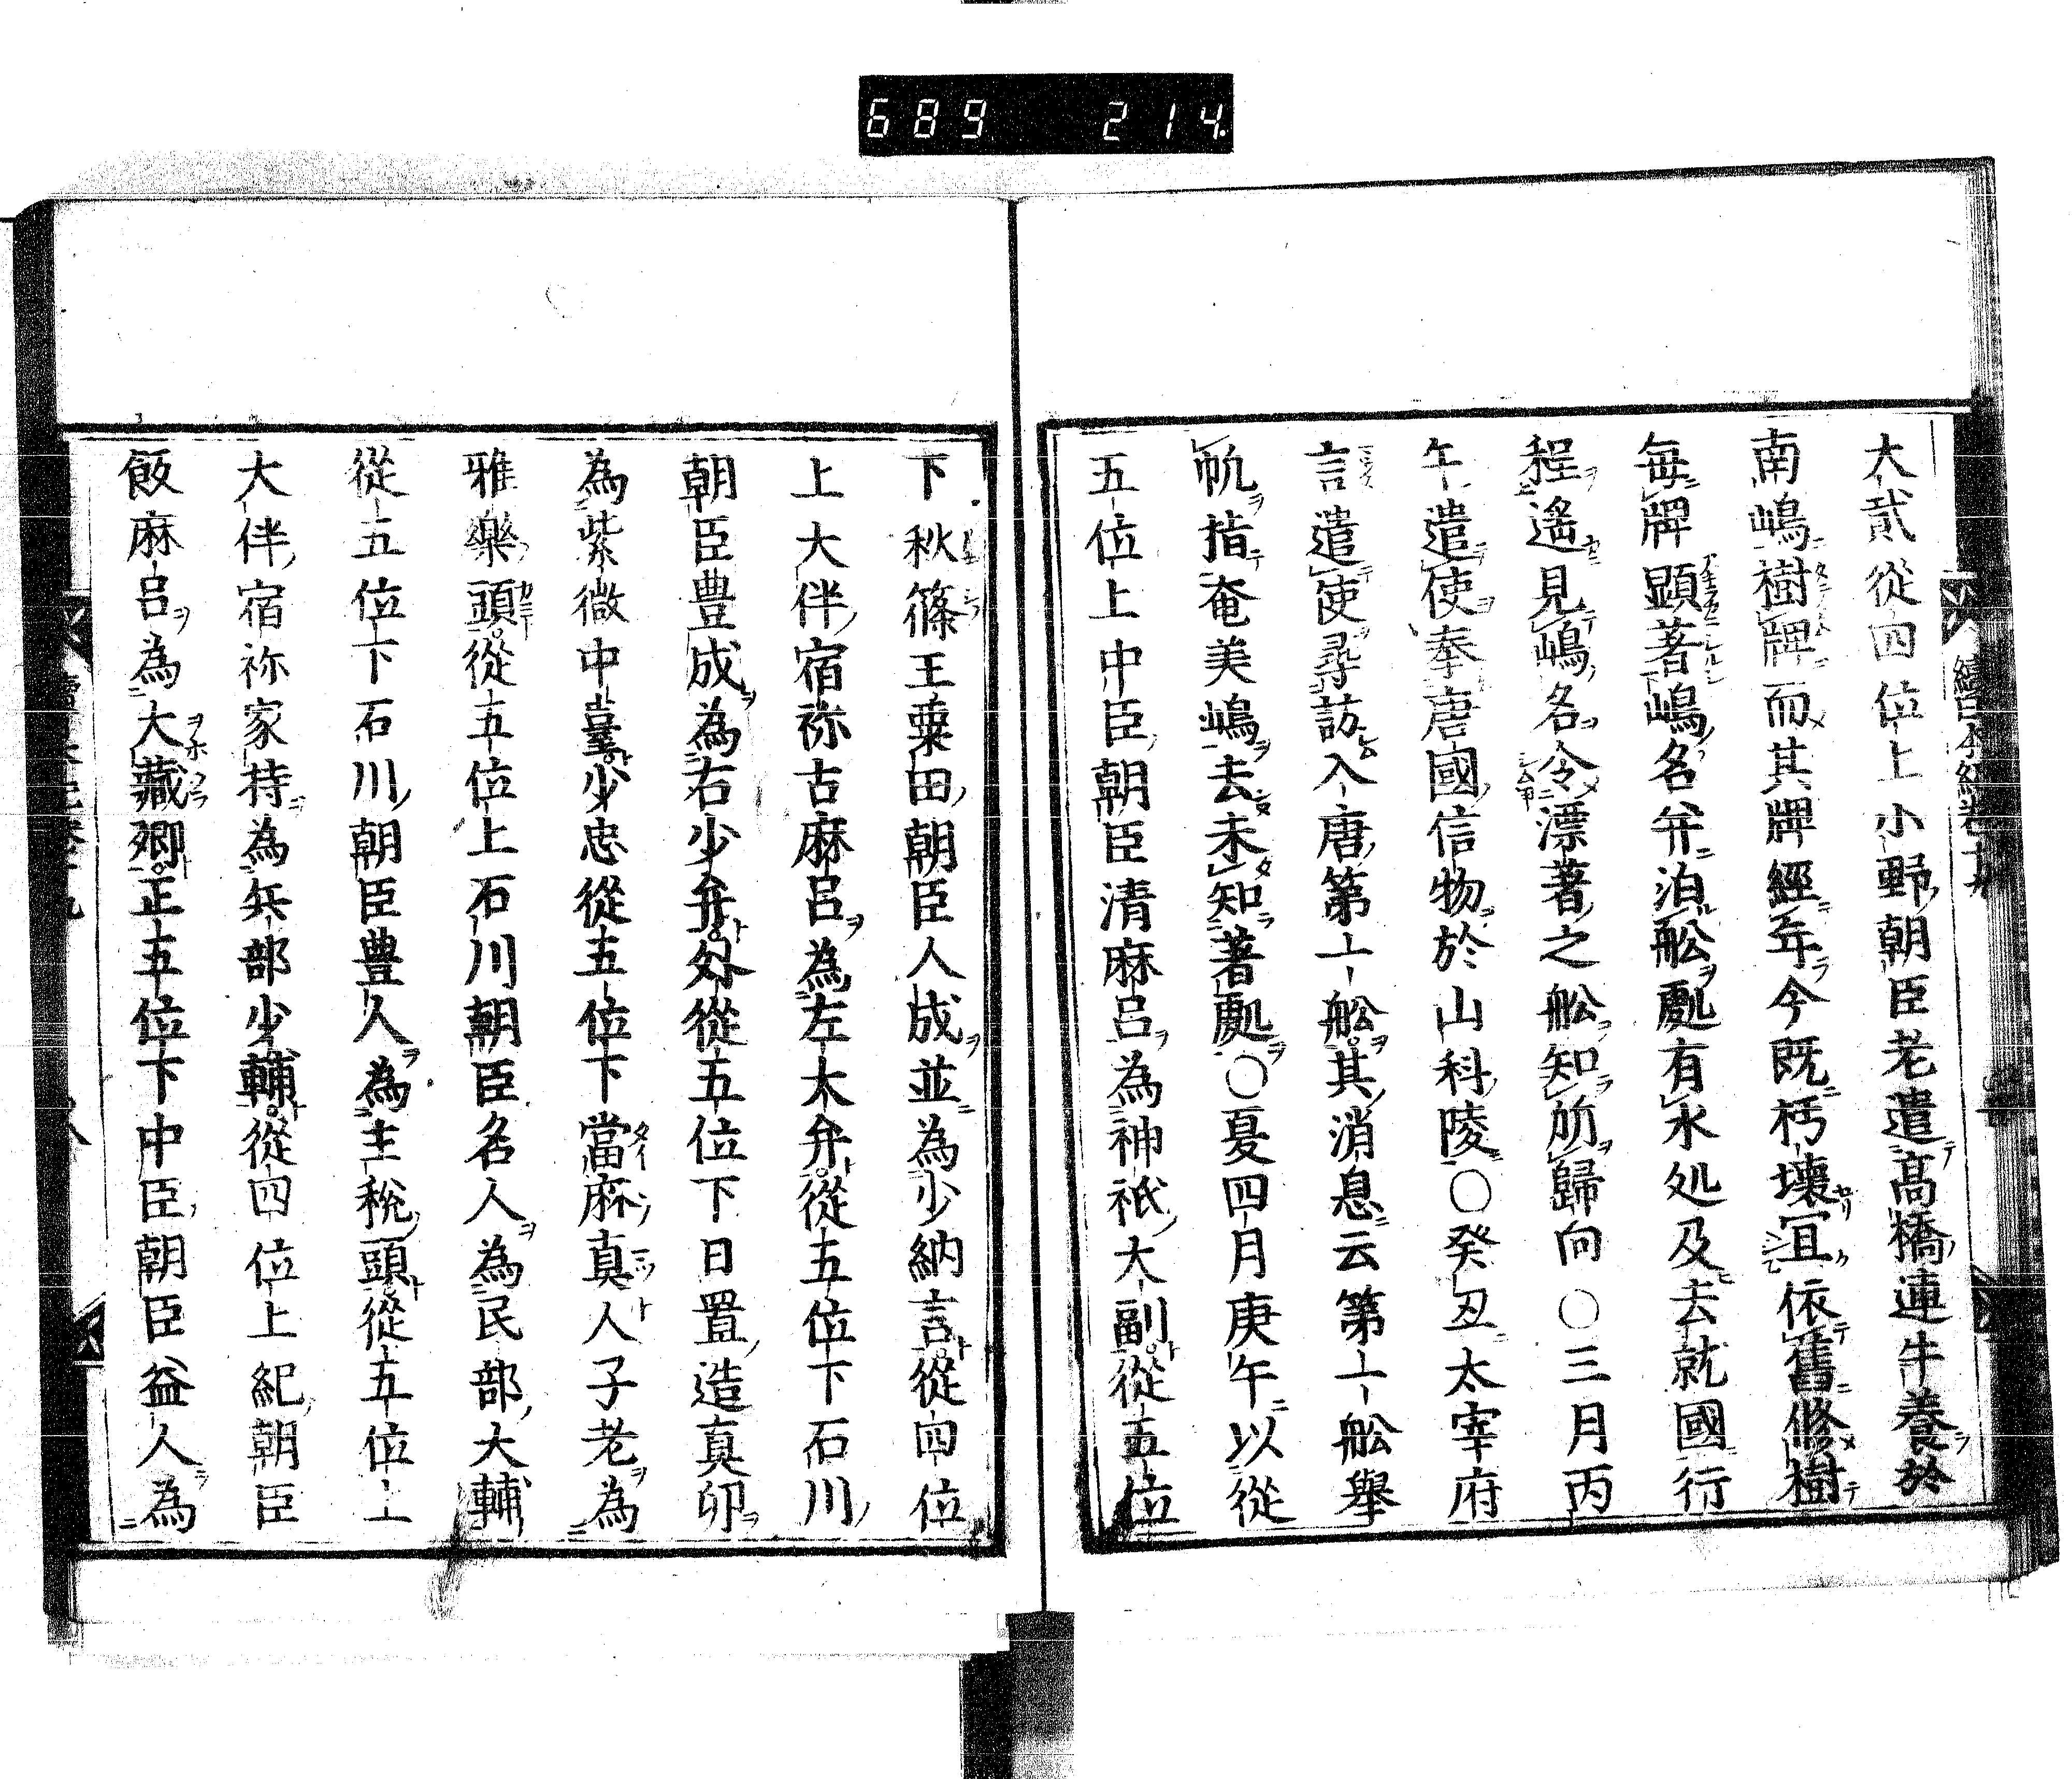 689 214.
大貳從四位上小野朝臣老遣高橋連牛養於
南嶋樹牌而其牌經年今既朽壞冝依舊修樹
每牌顕著嶋名并泊舩處有水処及去就國行
程遙見嶋名令漂著之舩知所歸向○三月丙
午遣使奉唐國信物於山科陵○癸丑太宰府
言遣使尋訪入唐第一舩其消息云第一舩舉
帆指奄美嶋去未知著處○夏四月庚午以從
五位上中臣朝臣清麻呂為神祇大副從五位
下秋篠王粟田朝臣人成並為少納言從四位
上大伴宿祢古麻呂為左大弁從五位下石川
朝臣豊成為右少弁外從五位下日置造真卯
為紫微中臺少忠從五位下當麻真人子老為
雅樂頭從五位上石川朝臣名人為民部大輔
從五位下石川朝臣豊人為主稅頭從五位上
大伴宿祢家持為兵部少輔從四位上紀朝臣
飯麻呂為大藏卿正五位下中臣朝臣益人為